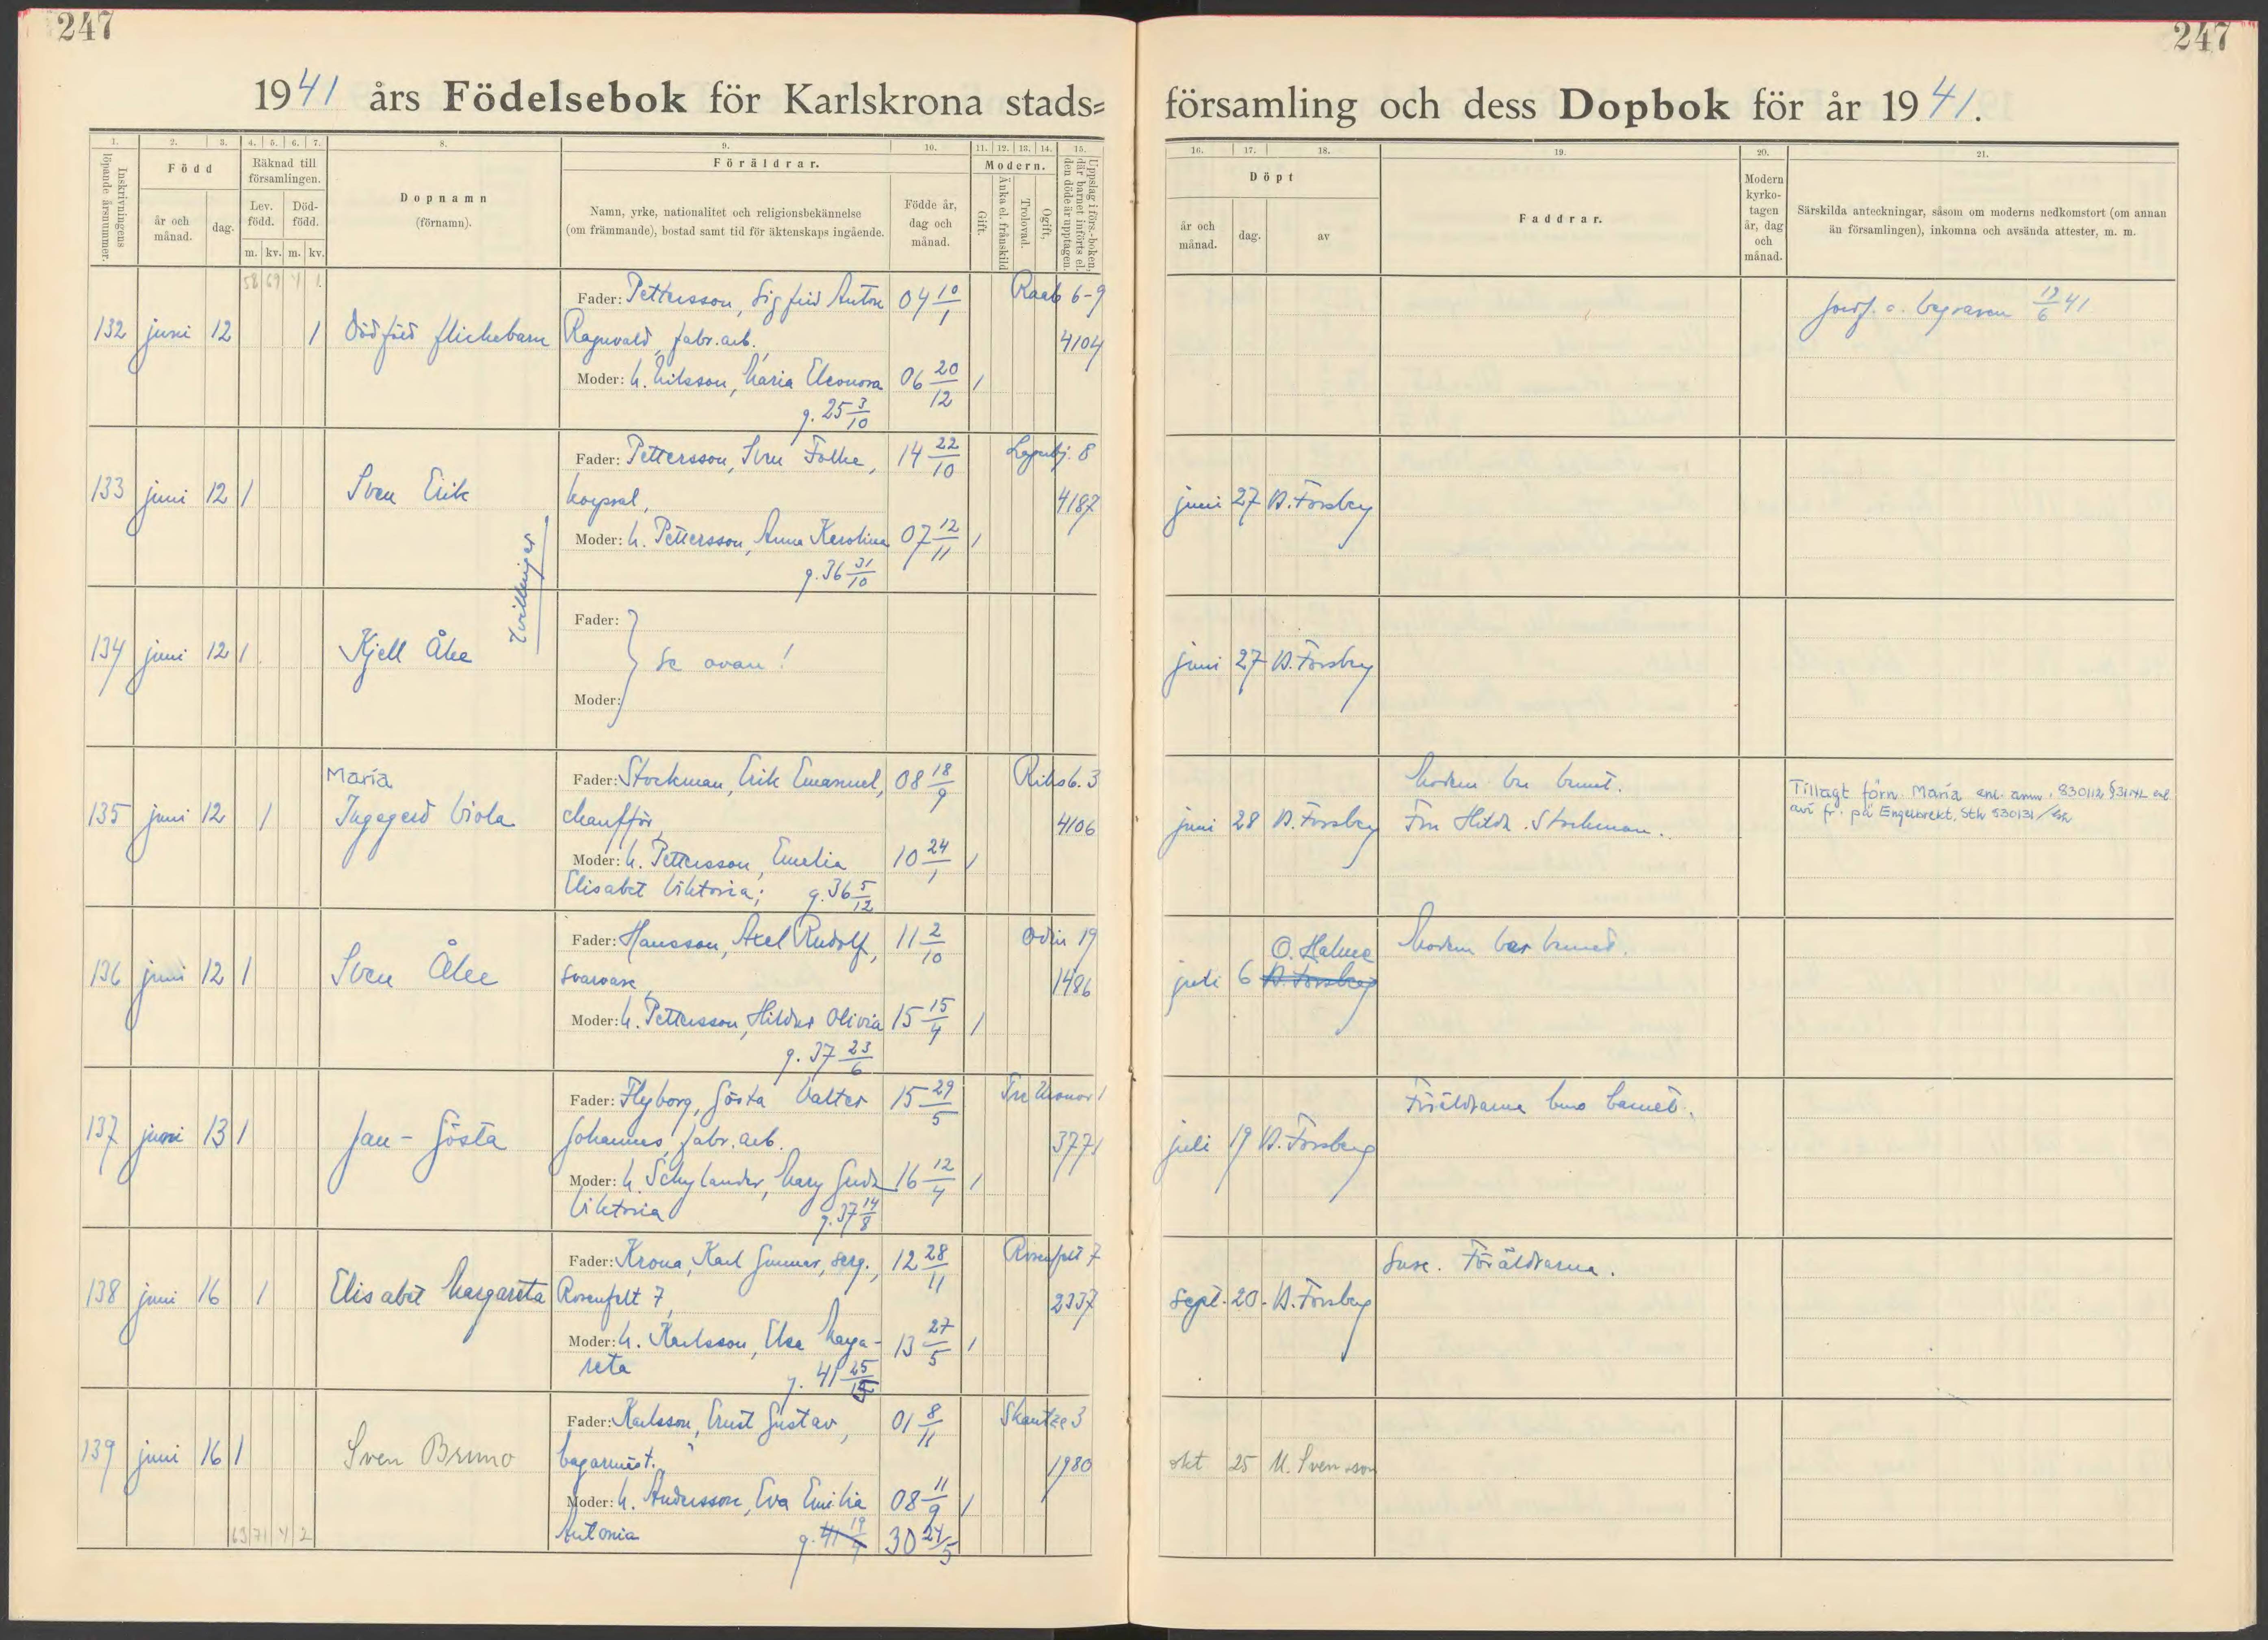 247
247
1941 års Födelsebok för Karlskrona stads=
församling och dess Dopbok för år 1941.
1. 2. 3. 4. 5. 6. 7. 8. 9. 10. 11. 12. 13. 14. 15.
Inskrivningens löpande årsnummer.
Född
år och månad.
dag.
Räknad till församlingen.
Lev. född.
Död-född.
m. kv. m. kv.
Dopnamn
(förnamn).
Föräldrar.
Namn, yrke, nationalitet och religionsbekännelse
(om främmande), bostad samt tid för äktenskaps ingående.
Födde år, dag och månad.
Modern.
Gift.
Änka el. frånskild
Trolovad.
Ogift,
Uppslag i förs.-boken, där barnet införts el. den döde är upptagen.
16. 17. 18. 19. 20. 21.
Döpt
år och månad.
dag.
av
Faddrar.
Modern kyrko-tagen år, dag och månad.
Särskilda anteckningar, såsom om moderns nedkomstort (om annan
än församlingen), inkomna och avsända attester, m. m.
58 69 4 1
Fader: Pettersson, Sigfrid Anton 04 10/1 Raab 6-9
132 juni 12 1 Dödfött flickebarn Ragnvald, fabr.arb. 4104
Moder: h. Nilsson, Maria Eleonora 06 20/12 1
g. 25 3/10
Jordf. o. begraven 12/6 41
Fader: Pettersson, Sven Folke, 14 22/10 8
133 juni 12 1 Sven Erik korpral, 4187
Moder: h. Pettersson, Anna Karolina 07 12/11 1
g. 36 31/10
juni 27 B. Forsberg
Tvillingar
Fader:
134 juni 12 1 Kjell Åke Se ovan!
Moder:
juni 27 B. Forsberg
Maria
Fader: Stockman, Erik Emanuel, 08 18/9 Riksb. 3
135 juni 12 1 Ingegerd Viola chaufför, 4106
Moder: h. Pettersson, Emelia 10 24/1 1
Elisabet Viktoria; g. 36 5/12
Modern bar barnet.
juni 28 B. Forsberg Fru Hilda Stockman.
Tillagt förn. Maria enl. anm. 830112 §31 NL enl.
avi fr. på Engelbrekt, Sth 830131
Fader: Hansson, Axel Rudolf, 11 2/10 Odin 19
136 juni 12 1 Sven Åke svarvare, 1486
Moder: h. Pettersson, Hildur Olivia 15 15/4 1
g. 37 23/6
O. Halme Modern bar barnet.
juli 6 B. Forsberg
Fader: Flyborg, Gösta Valter 15 29/5 Tre Kronor 1
137 juni 13 1 Jan-Gösta Johannes, fabr.arb. 3771
Moder: h. Schylander, Mary 16 12/4 1
Viktoria g. 37 14/8
Föräldrarna buro barnet.
juli 19 B. Forsberg
Fader: Krona, Karl Gunnar, serg., 12 28/11 Rosenfelt 7
138 juni 16 1 Elisabet Margareta Rosenfelt 7, 2337
Moder: h. Karlsson, Elsa Marga- 13 27/5 1
reta g. 41 25
Susc. Föräldrarna.
sept. 20. B. Forsberg
Fader: Karlsson, Ernst Gustav, 01 8/11 Skantze 3
139 juni 16 1 Sven Bruno bagarmäst. 1980
Moder: h. Andersson, Eva Emilia 08 11/9 1
Antonia g. 30 24/5
63 71 4 2
okt 25 M. Svensson